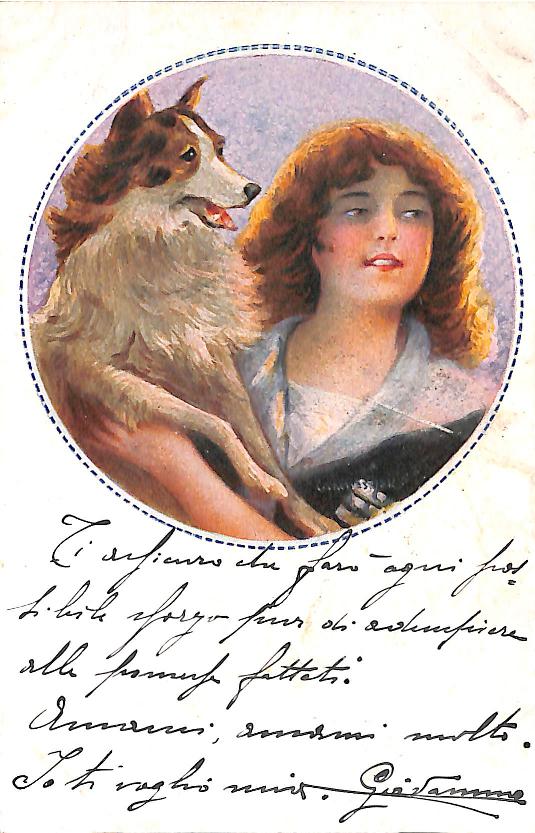 Ti assicuro che farò ogni pos=
sibile sforzo pur di adempiere
alle promesse fatteti.
Amami, amami molto.
Io ti voglio mia.